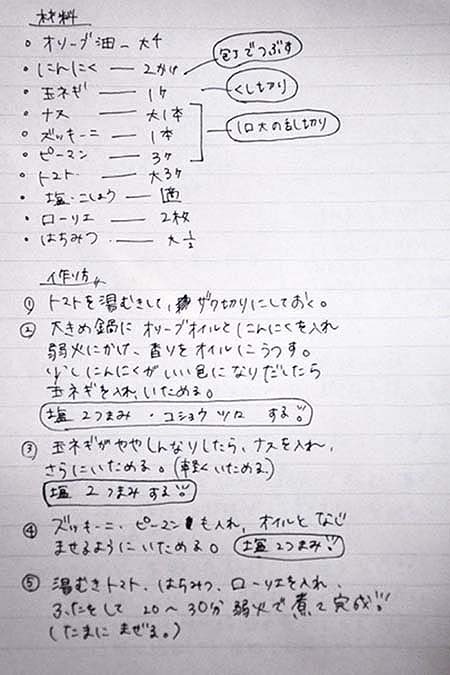 材料
・オリーブ油 ― 大4
・にんにく ― 2かけ 包丁でつぶす
・玉ネギ ― 1ケ くし切り
・ナス ― 大1本
・ズッキーニ ― 1本 1口大の乱切り
・ピーマン ― 3ケ
・トマト ― 大3ケ
・塩・こしょう ― 適
・ローリエ ― 2枚
・はちみつ ― 大1/2
作り方
① トマトを湯むきして、ザク切りにしておく。
② 大きめ鍋に オリーブオイルとにんにくを入れ
弱火にかけ、香りをオイルにうつす。
少しにんにくがいい色になりだしたら
玉ネギを入れ、いためる。
塩2つまみ・コショウ する!!
③ 玉ネギがややしんなりしたら、ナスを入れ、
さらにいためる。(軽くいためる)
塩 2つまみする!!
④ ズッキーニ・ピーマンも入れ、オイルと なじ
ませるようにいためる。 塩2つまみ!!
⑤ 湯むきトマト、はちみつ、ローリエを入れ、
ふたをして 20〜30分 弱火で煮て完成!!
(たまに まぜる。)